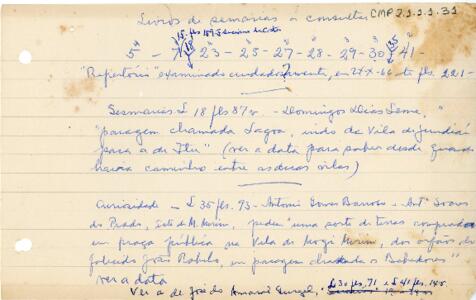 Livros de sesmarias a consultar CMP 2.1.1.1.31
15-fls 159
18 35
5 - 7 - 23 - 25 - 27 - 28 - 29 - 30 41 -
"Repertorio" examinado cuidadosamente, em 27-X-66 - fls 221-
Sesmarias L 18 fls 87v - Domingos Dias Leme,
"paragem chamada Lagoa, indo da Vila de Jundiaí
para a de Itu" (ver a data para saber desde quando
havia caminho entre as duas vilas)
Curiosidade - L 35 fls. 93 - Antonio Barros e Antº Soares
do Prado, de M. Mirim, pedem "uma sorte de terras comprada
em praça pública na Vila de Mogi Mirim, dos orfãos do
falecido João Rabelo, em paragem chamada o Bebedouro"
ver a data
Ver a de José do Amaral Gurgel, L 30 fls, 71 e L 41 fls. 14v.